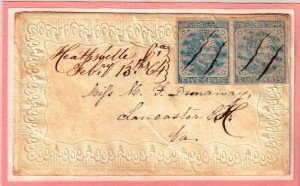 Heathsville Va
Feby 13th 64
FIVE CENTS FIVE CENTS
Miss M. F. Dunaway,
Lancaster C.H.
Va.